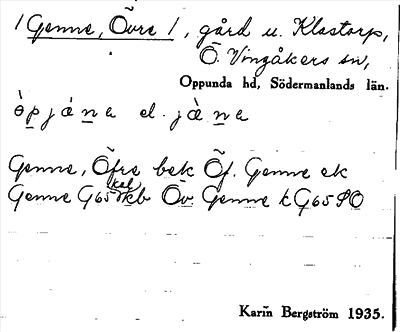 / Genne, Övre /, gård u. Klastorp,
Ö. Vingåkers sn,
Oppunda hd, Södermanlands län.
ö̀pjána el. jä̀na
Genne, Öfre bek Öf. Genne ek
Genne G65 kal kb Öv Genne k G65 PO
Karin Bergström 1935.